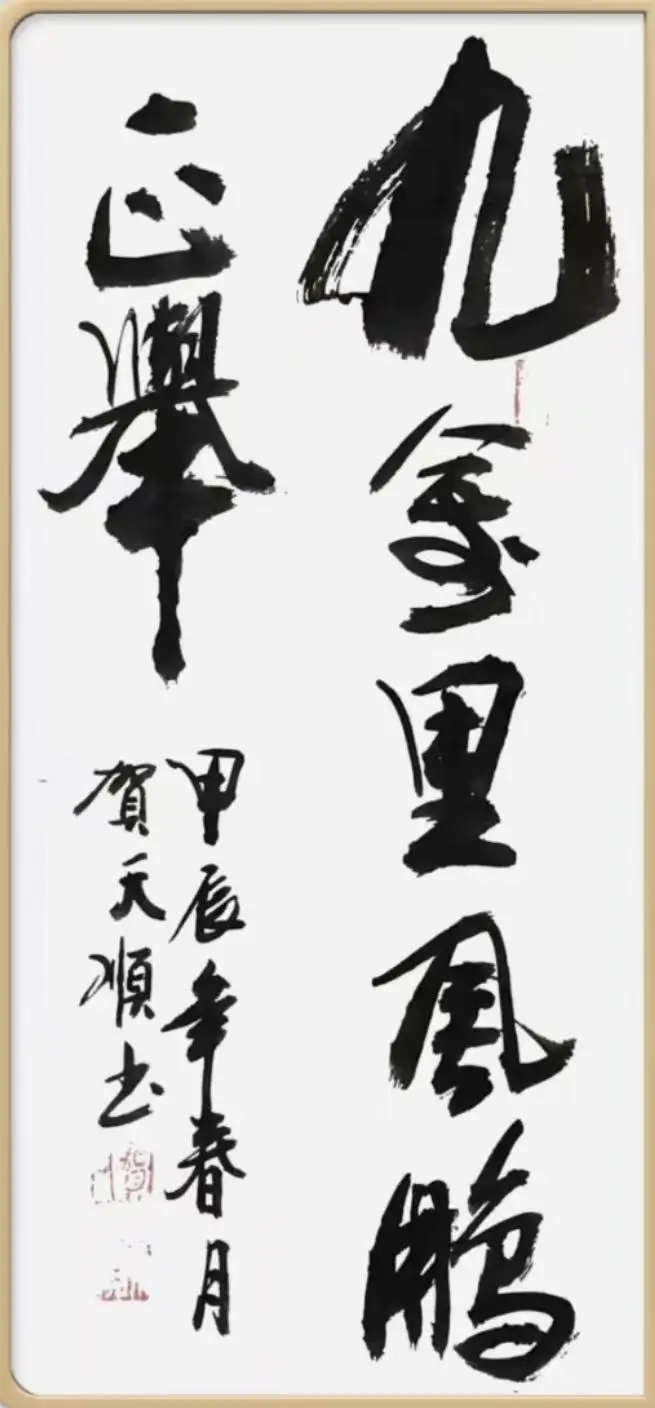 九萬里風鵬
正舉
甲辰年春月
賀天順书